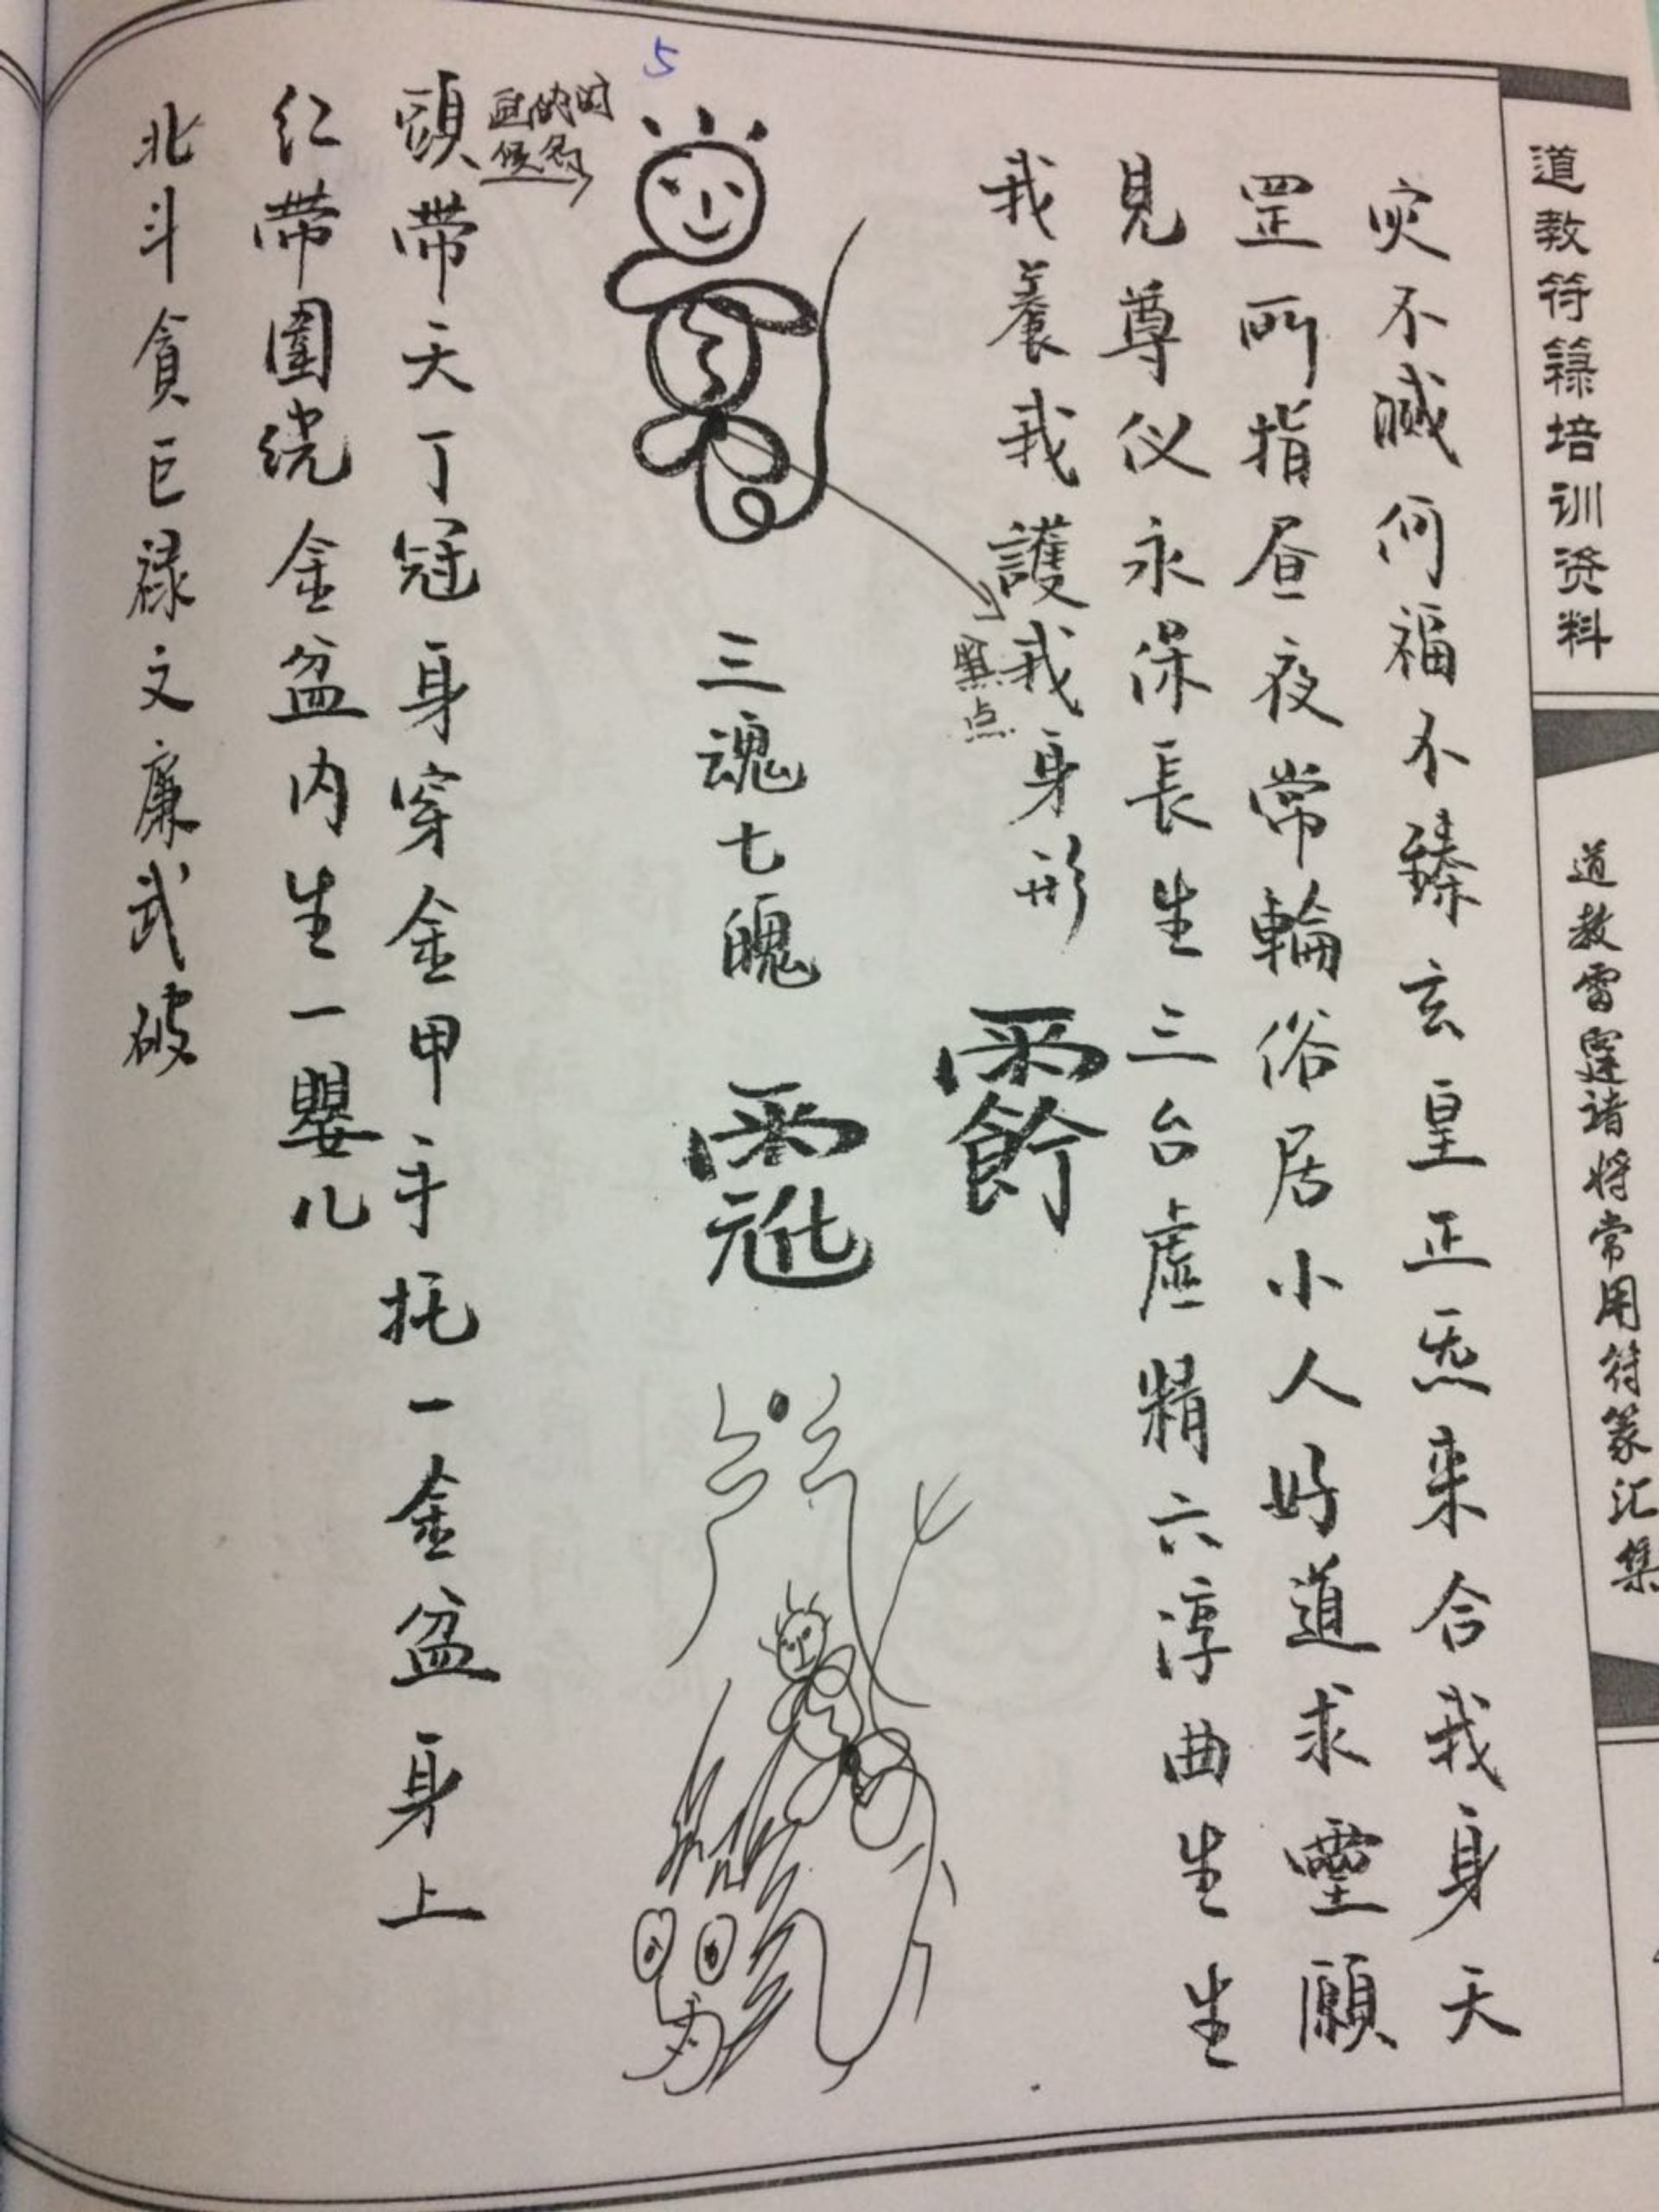 道教符籙培训资料
道教雷霆请将常用符篆汇集
灾不滅何福不臻玄皇正炁来合我身天
罡所指昼夜常輪俗居小人好道求靈願
見尊仪永保長生三台虚精六淳曲生生
我养我護我身形
黑点
5
三魂七魄
頭带天丁冠身穿金甲手托一金盆身上
红带圍绕金盆内生一嬰儿
北斗貪巨禄文廉武破